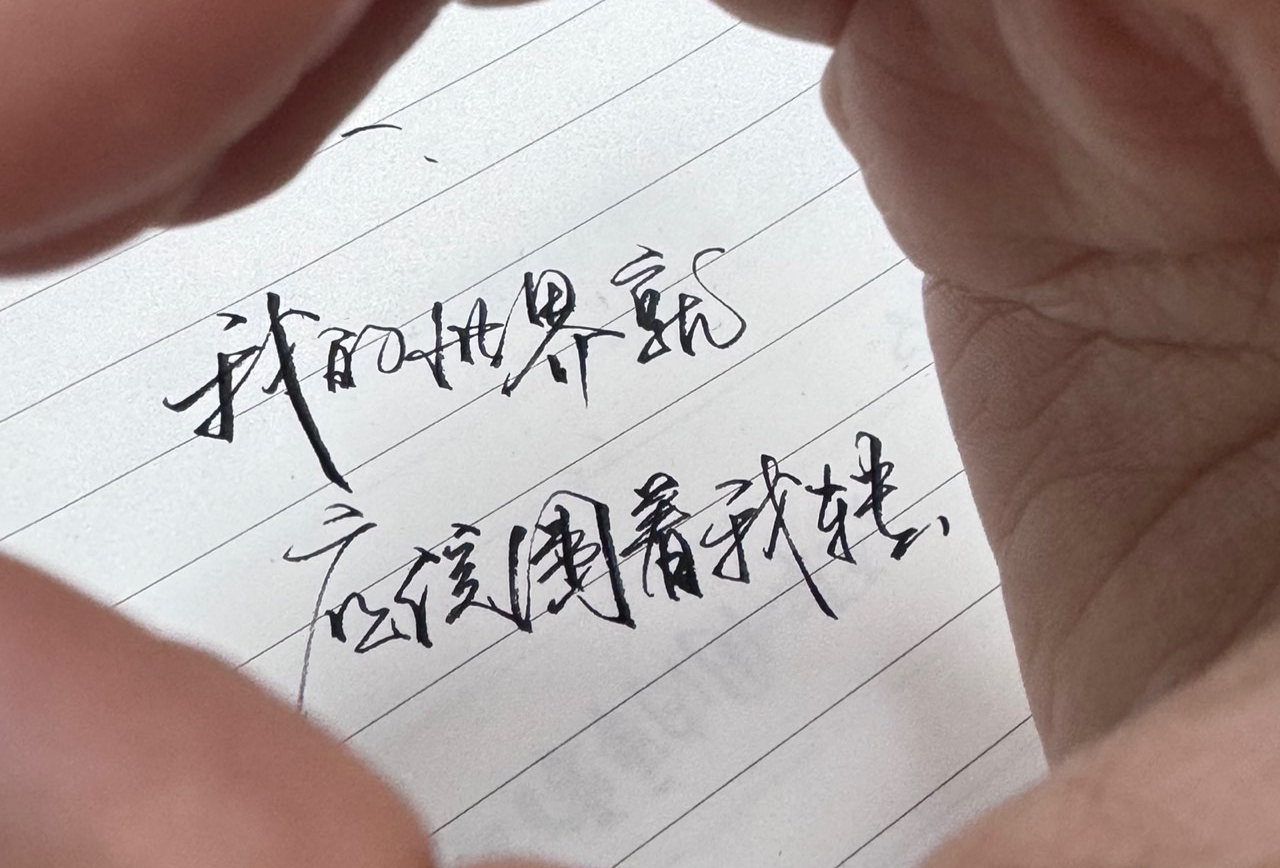 我的世界就
应该围着我转